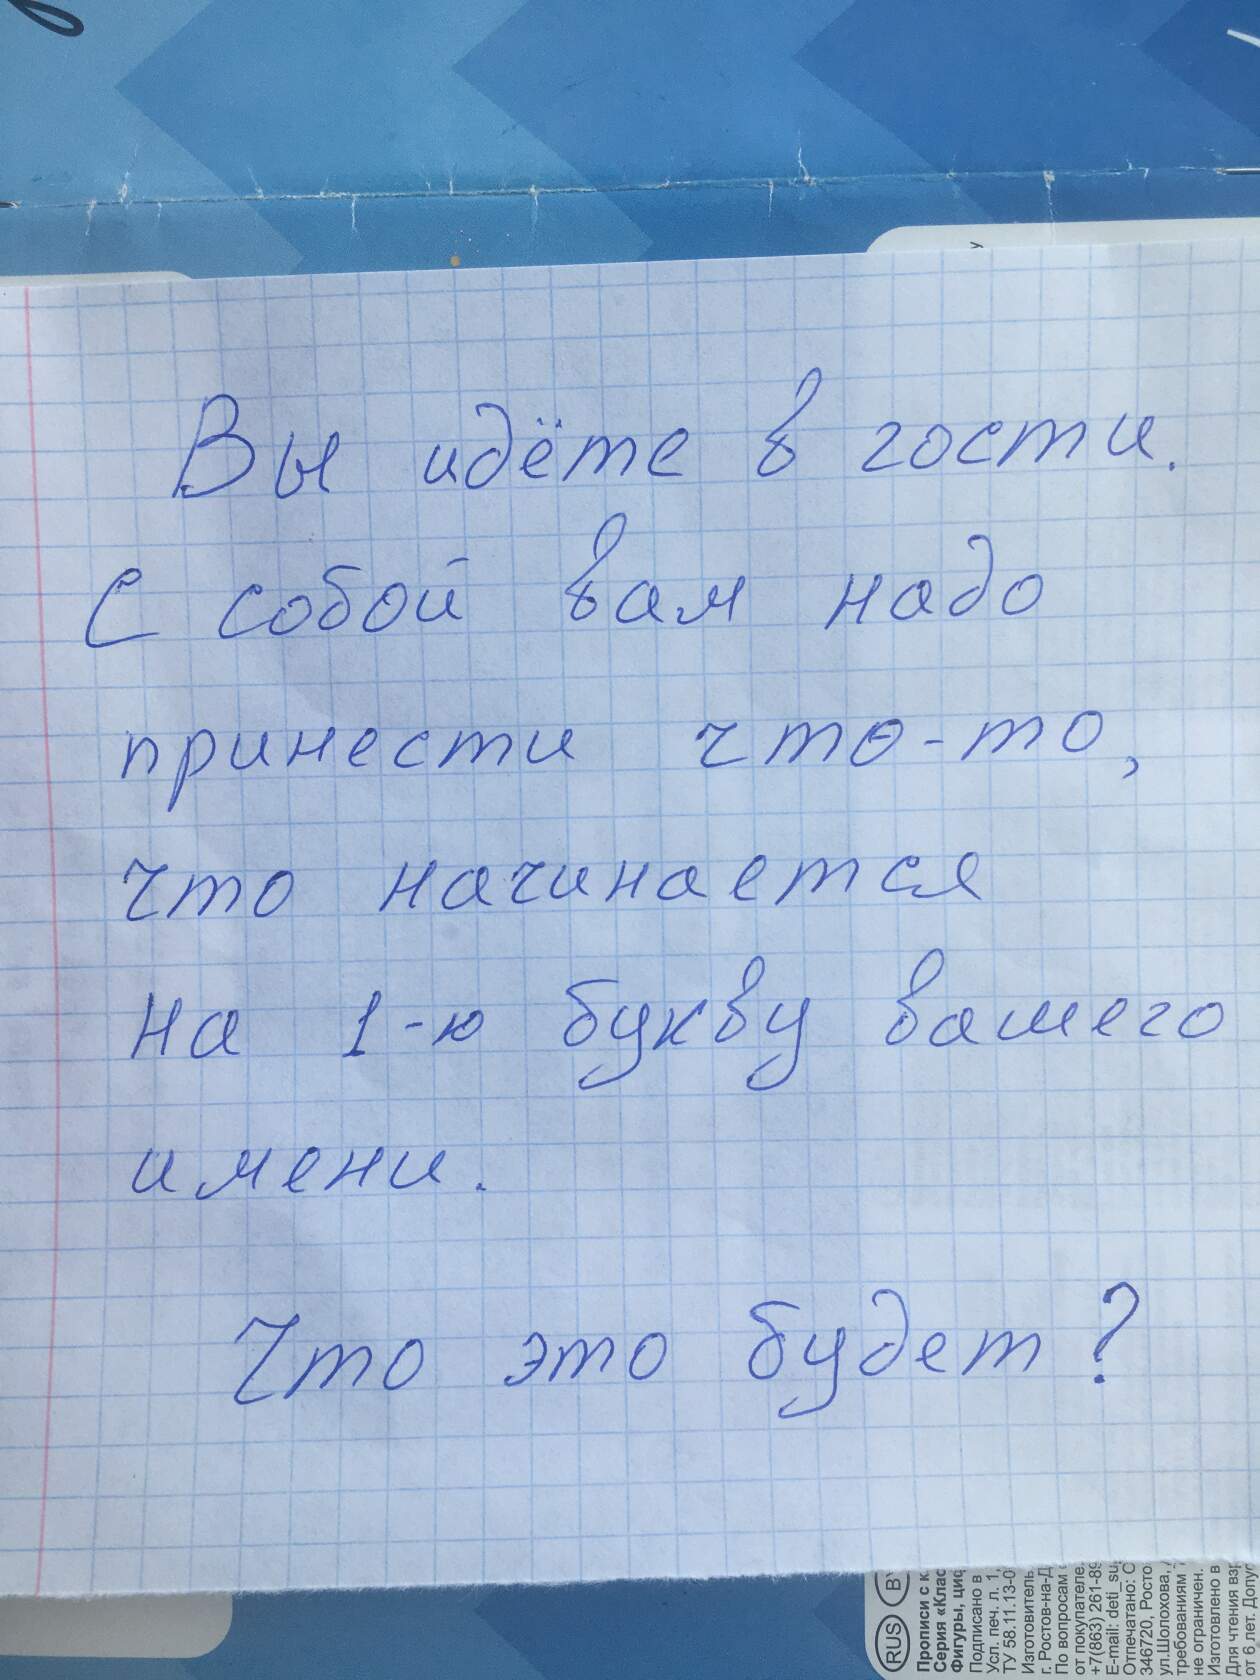 Вы идёте в гости.
С собой вам надо
принести что-то,
что начинается
на 1-ю букву вашего
имени.
Что это будет?
RUS
Прописи с к
Серия «Клас
Фигуры, циф
Подписано в
Усл. печ. л. 1,
ТУ 58.11.13-0
Изготовитель
Ростов-на-Д
По вопросам
от покупателе
+7(863) 261-89
E-mail: deti_su
Отпечатано: С
346720, Росто
ул.Шолохова,
требованиям
не ограничен.
Изготовлено в
Для чтения взр
от 6 лет. Допу